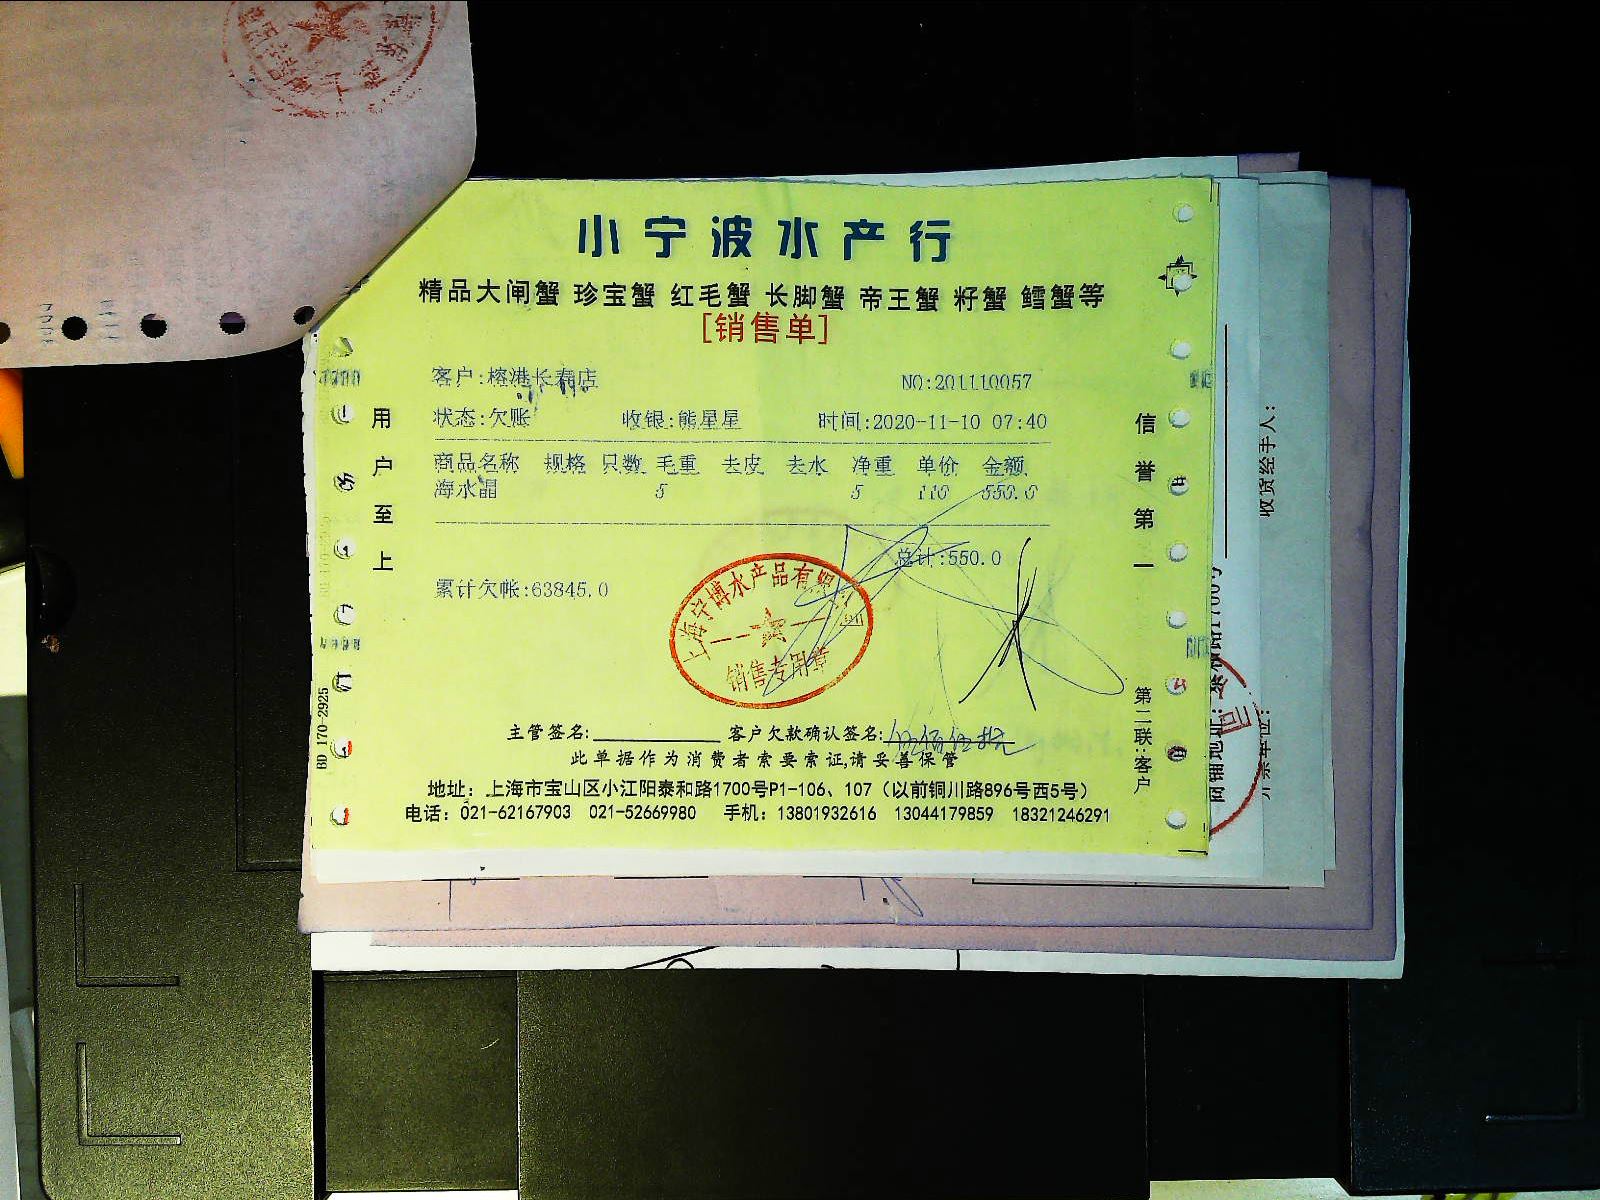 小宁波水产行
精品大闸蟹 珍宝蟹 红毛蟹 长脚蟹 帝王蟹 籽蟹 鳕蟹等
[销售单]
客户:榕港长寿店 NO:201110057
状态:欠账 收银:熊星星 时间:2020-11-10 07:40
商品名称 规格 只数 毛重 去皮 去水 净重 单价 金额
海水晶 5 5 110 550.0
总计:550.0
累计欠帐:63845.0
上海宁博水产品有限公司
销售专用章
主管签名: 客户欠款确认签名:
此单据作为消费者索要索证,请妥善保管
地址：上海市宝山区小江阳泰和路1700号P1-106、107（以前铜川路896号西5号）
电话：021-62167903 021-52669980 手机：13801932616 13044179859 18321246291
用户至上
信誉第一
第二联:客户
BD 170-2925
收货经手人: